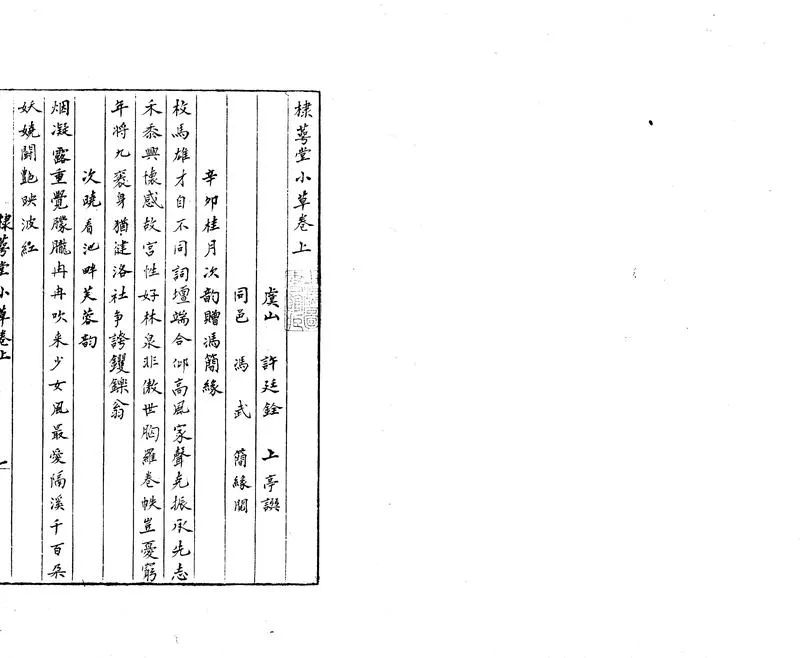 棣萼堂小草卷上
虞山 許廷銓 上亭譔
同邑 馮武 簡緣閱
辛卯桂月次韵贈馮簡緣
枚馬雄才自不同詞壇端合仰高風家聲克振承先志
禾黍興懷感故宫性好林泉非傲世胸羅卷帙豈憂窮
年將九袠身猶健洛社爭誇钁鑠翁
次曉看池畔芙蓉韵
烟凝露重覺朦朧冉冉吹来少女風最愛隔溪千百朵
妖嬈鬪艶映波紅
棣萼堂小草卷上
一